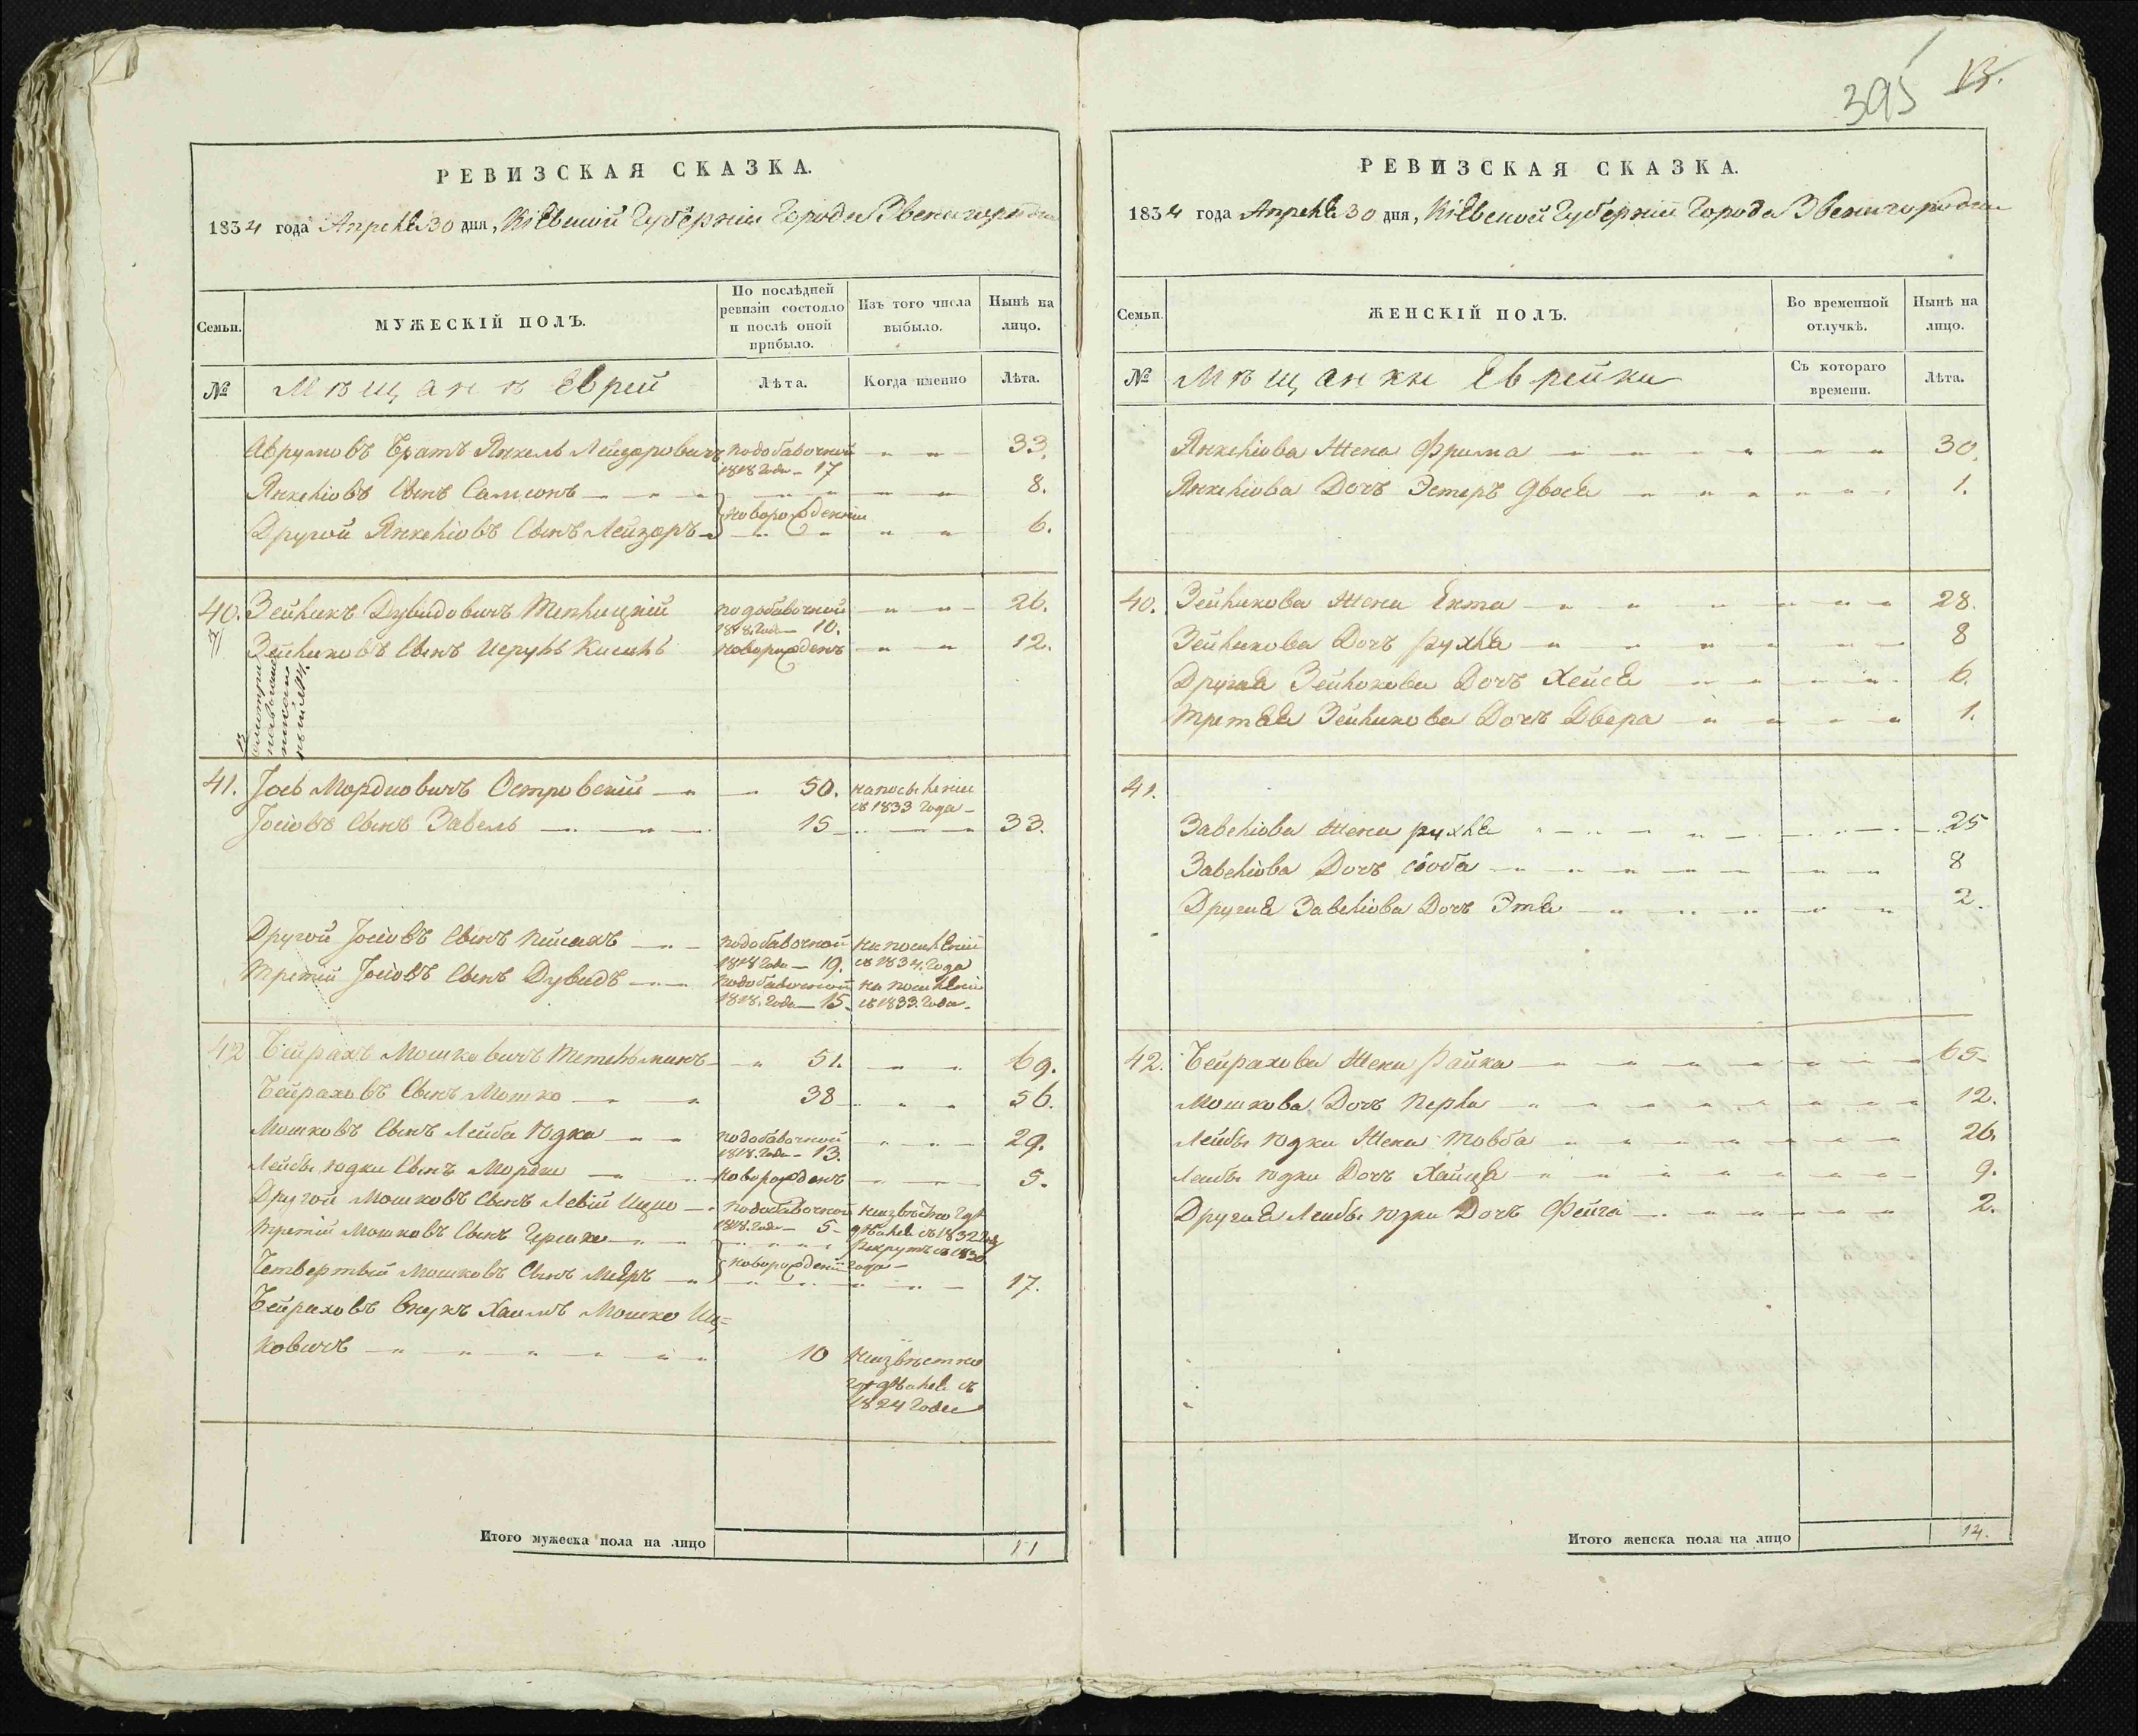 395 13.
РЕВИЗСКАЯ СКАЗКА.
1834 года Апреля 30 дня, Кіевской Губерніи Города Звенигородки
Семьи.
МУЖЕСКІЙ ПОЛЪ.
По послѣдней ревизіи состояло и послѣ оной прибыло.
Изъ того числа выбыло.
Нынѣ на лицо.
№ Мѣщанѣ Еврей Лѣта. Когда именно Лѣта.
Аврумовъ Братъ Янкель Лейзоровичъ подобавочной 1818 года – 17 33.
Янкеліовъ Сынъ Самсонъ 8.
новорожденніи
Другой Янкеліовъ Сынъ Лейзоръ 6.
40. Зейликъ Дувидовичъ Теплицкій подобавочной 1818. Года – 10. 26.
Зейликовъ Сынъ Исруль Кисиль новорожденъ 12.
41. Іось Мордковичъ Островскій 50. на посѣленіи съ 1833 Года
Іосіовъ Сынъ Завель 15 33.
Другой Іосіовъ Сынъ Пейсахъ подобавочной 1818 Года – 19. на посиленіи съ 1834. Года
Третій Іосіовъ Сынъ Дувидъ подобавочной 1818. Года – 15 на посиленіи съ 1833. Года
42 Бейрахъ Мошковичъ Тетельманъ 51. 69.
Бейраховъ Сынъ Мошко 38 56.
Мошковъ Сынъ Лейба Юдка подобавочной 1818. Года – 13. 29.
Лейбы Юдки Сынъ Мордко новорожденъ 5.
Другой Мошковъ Сынъ Левій Ицко подобавочной 1818. Года – 5 неизвѣстно где дѣвался съ 1832 Году
Третій Мошковъ Сынъ Гершко рекрутъ съ 1830 года
новорожденіи
Четвертый Мошковъ Сынъ Меѣръ 17.
Бейраховъ Внукъ Хаимъ Мошко Иц=
ковичъ 10 Неизвѣстно
где дѣвался съ
1824 Года
Итого мужеска пола на лицо 11
РЕВИЗСКАЯ СКАЗКА.
1834 года Апреля 30 дня, Кіевской Губерніи Города Звенигородки
Семьи.
ЖЕНСКІЙ ПОЛЪ.
Во временной отлучкѣ.
Нынѣ на лицо.
№ Мѣщанки Еврейки Съ котораго времени. Лѣта.
Янкеліова Жена Фрима 30.
Янкеліова Дочь Эстеръ Двося 1.
40. Зейликова Жена Ента 28.
Зейликова Дочь Рухля 8
Другая Зейликова Дочь Хейся 6.
Третяя Зейликова Дочь Двера 1.
41.
Завеліова Жена рухля 25
Завеліова Дочь Сіоба 8
Другая Завеліова Дочь Этя 2.
42. Бейрахова Жена Райка 65
Мошкова Дочь Перла 12.
Лейбы Юдки Жена Товба 26.
Лейбы Юдки Дочь Хайця 9.
Другая Лейбы Юдки Дочь Фейга 2.
Итого женска пола на лицо 14.